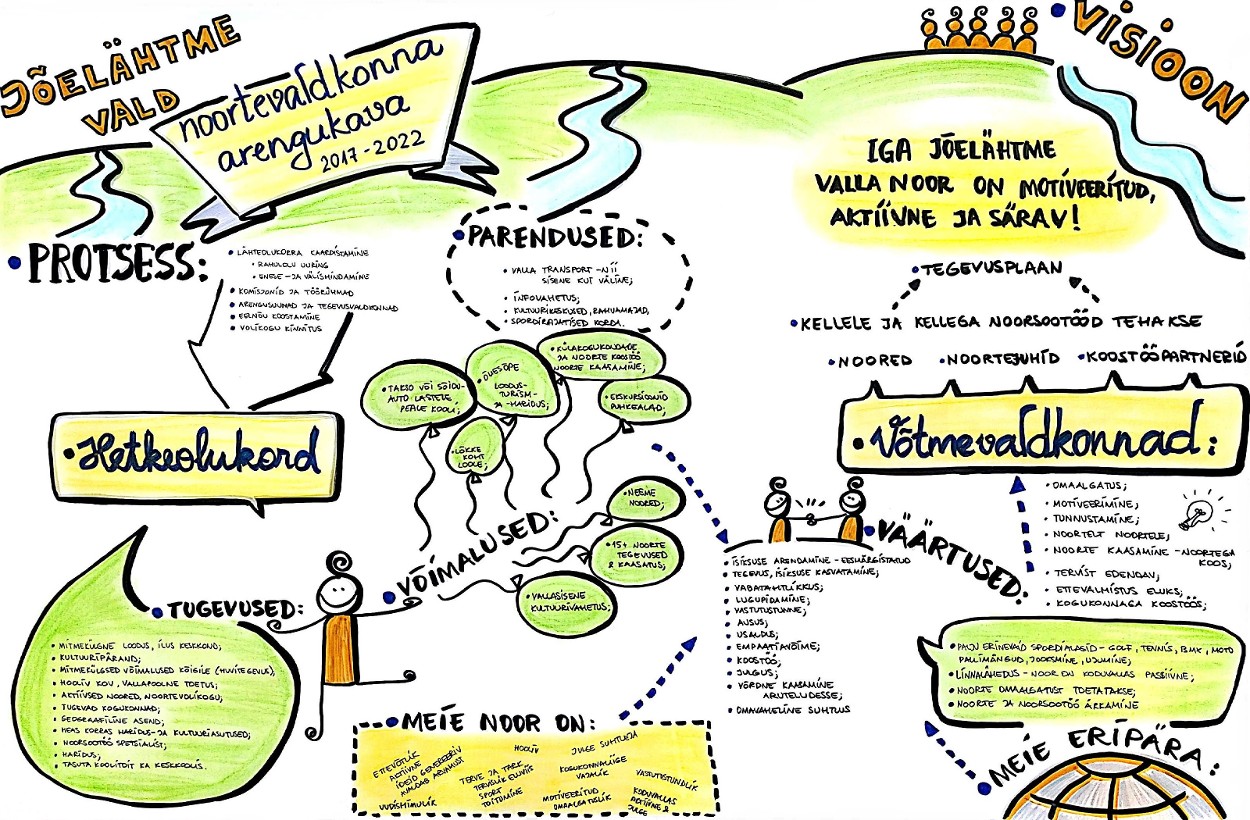 JÕELÄHTME
VALD
noortevaldkonna
arengukava
2017-2022
VISIOON
IGA JÕELÄHTME
VALLA NOOR ON MOTIVEERITUD,
AKTIIVNE JA SÄRAV!
• PROTSESS:
• LÄHTEOLUKORRA KAARDISTAMINE
• RAHULOLU UURING
• ENESE- JA VÄLISHINDAMINE
• KOMISJONID JA TÖÖRÜHMAD
• ARENGUSUUNAD JA TEGEVUSVALDKONNAD
• EELNÕU KOOSTAMINE
• VOLIKOGU KINNITUS
• PARENDUSED:
• VALLA TRANSPORT - NII
SISENE KUI VÄLINE;
• INFOVAHETUS;
• KULTUURIKESKUSED, RAHVAMAJAD,
• SPORDIRAJATISED KORDA.
• TEGEVUSPLAAN
• KELLELE JA KELLEGA NOORSOOTÖÖD TEHAKSE
• NOORED • NOORTEJUHID • KOOSTÖÖPARTNERID
• Hetkeolukord
• TAKSO VÕI SÕIDU-
AUTO LASTELE
PEALE KOOLI;
• ÕUESÕPE
LOODUS-
TURISM-
JA -HARIDUS;
• KÜLAKOGUKONDADE
JA NOORTE KOOSTÖÖ
NOORTE KAASAMINE;
• EKSKURSIOONID
PUHKEALAD;
• LÕKKE
KOHT
LOOLE;
• NEEME
NOORED;
• 15+ NOORTE
TEGEVUSED
& KAASATUS;
• VALLASISENE
KULTUURIVAHETUS;
• VÕIMALUSED:
• Võtmevaldkonnad:
• OMAALGATUS;
• MOTIVEERIMINE;
• TUNNUSTAMINE;
• NOORTELT NOORTELE;
• NOORTE KAASAMINE - NOORTEGA
KOOS;
• TERVIST EDENDAV;
• ETTEVALMISTUS ELUKS;
• KOGUKONNAGA KOOSTÖÖS;
• VÄÄRTUSED:
• ISIKSUSE ARENDAMINE - EESMÄRGISTATUD
• TEGEVUS, ISIKSUSE KASVATAMINE;
• VABATAHTLIKKUS;
• LUGUPIDAMINE;
• VASTUTUSTUNNE;
• AUSUS;
• USALDUS;
• EMPAATIAVÕIME;
• KOOSTÖÖ;
• JULGUS;
• VÕRDNE KAASAMINE
ARUTELUDESSE;
• OMAVAHELINE SUHTLUS
• TUGEVUSED:
• MITMEKÜLGNE LOODUS, ILUS KESKKOND;
• KULTUURIPÄRAND;
• MITMEKÜLGSED VÕIMALUSED KÕIGILE (HUVITEGEVUS);
• HOOLIV KOV, VALLAPOOLNE TOETUS;
• AKTIIVSED NOORED, NOORTEVOLIKOGU;
• TUGEVAD KOGUKONNAD;
• GEOGRAAFILINE ASEND;
• HEAS KORRAS HARIDUS- JA KULTUURIASUTUSED;
• NOORSOOTÖÖ SPETSIALIST;
• HARIDUS;
• TASUTA KOOLITOIT KA KESKKOOLIS.
• MEIE NOOR ON:
ETTEVÕTLIK
AKTIIVNE
IDEID GENEREERIV
AVALDAB ARVAMUST
UUDISHIMULIK
HOOLIV
TERVE JA TARK
TERVISLIK ELUVIIS
SPORT
TOITUMINE
JULGE SUHTLEJA
KOGUKONNALIIGE
VAJALIK
MOTIVEERITUD
OMAALGATUSLIK
VASTUTUSTUNDLIK
KODUVALLAS
AKTIIVNE &
JULGE
• PALJU ERINEVAID SPORDIALASID - GOLF, TENNIS, BMX, MOTO
PALLIMÄNGUD, JOOKSMINE, UJUMINE;
• LINNALÄHEDUS - NOOR ON KODUVALLAS PASSIIVNE;
• NOORTE OMAALGATUST TOETATAKSE;
• NOORTE JA NOORSOOTÖÖ ÄRKAMINE
• MEIE ERIPÄRA: